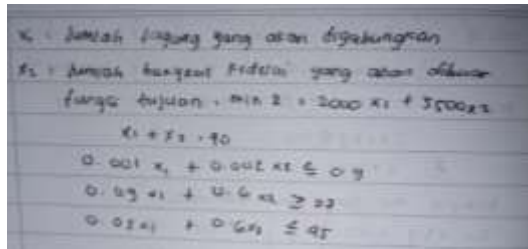 x₁ : Jumlah jagung yang akan digabungkan
x₂ : Jumlah bungkus kedelai yang akan
fungsi tujuan : min z = 2000 x₁ + 3500 x₂
x₁ + x₂ = 90
0.001 x₁ + 0.002 x₂ ≤ 0.9
0.09 x₁ + 0.6 x₂ ≥
x₁ + 0.6x₂ ≤